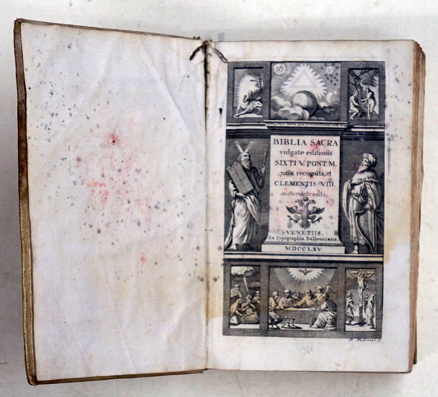 BIBLIA SACRA
vulgatæ editionis
SIXTI V. PONT. M.
jussu recognita, et
CLEMENTIS VIII
auctoritate edita
VENETIIS,
Ex Typographia Balleoniana
MDCCLXV